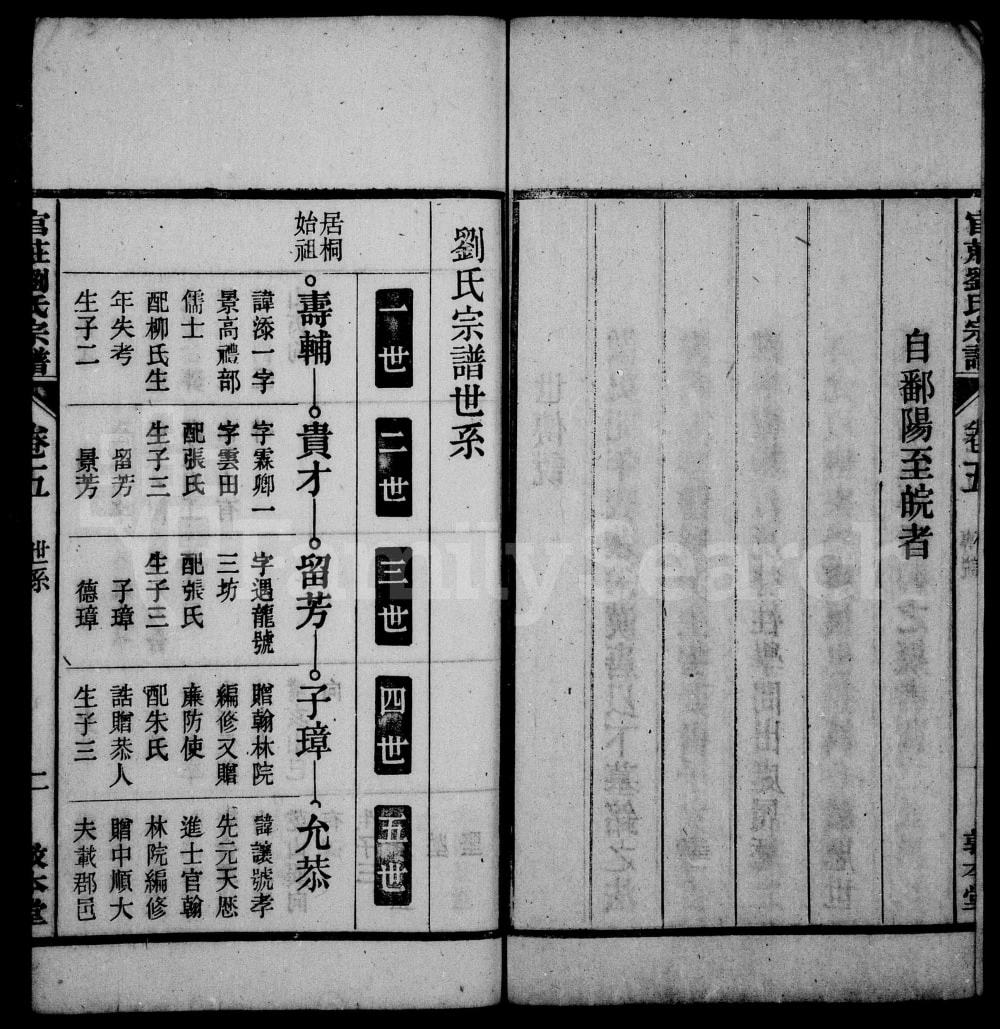 官莊劉氏宗譜
卷五
自鄱陽至皖者
劉氏宗譜世系
一世
二世
三世
四世
五世
居桐
始祖
壽輔
貴才
留芳
子璋
允恭
諱添一字
景高禮部
儒士
配柳氏生
年失考
生子二
字霖卿一
字雲田
配張氏
生子三
留芳
景芳
字遇龍號
三坊
配張氏
生子三
子璋
德璋
贈翰林院
編修又贈
廉防使
配朱氏
誥贈恭人
生子三
諱讓號孝
先元天厯
進士官翰
林院編修
贈中順大
夫載郡邑
官莊劉氏宗譜
卷五
世系
二
敦本堂
FamilySearch